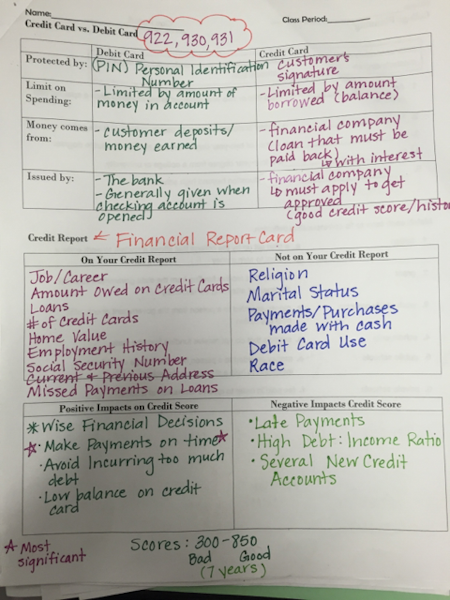 Name: Class Period:
Credit Card vs. Debit Card 922, 930, 931
Debit Card Credit Card
Protected by: (PIN) Personal Identification Number customer's signature
Limit on Spending: - Limited by amount of money in account - Limited by amount borrowed (balance)
Money comes from: - customer deposits/ money earned - financial company (loan that must be paid back) ↳ with interest
Issued by: - The bank - Generally given when checking account is opened - financial company ↳ must apply to get approved (good credit score/histo
Credit Report ← Financial Report Card
On Your Credit Report
Job/Career
Amount Owed on Credit Cards
Loans
# of Credit Cards
Home Value
Employment History
Social Security Number
Current & Previous Address
Missed Payments on Loans
Not on Your Credit Report
Religion
Marital Status
Payments/Purchases
made with cash
Debit Card Use
Race
Positive Impacts on Credit Score
* Wise Financial Decisions
☆· Make Payments on time☆
· Avoid Incurring too much
debt
· Low balance on credit
card
Negative Impacts Credit Score
· Late Payments
· High Debt: Income Ratio
· Several New Credit
Accounts
☆ Most
significant
Scores: 300-850
Bad Good
(7 years)